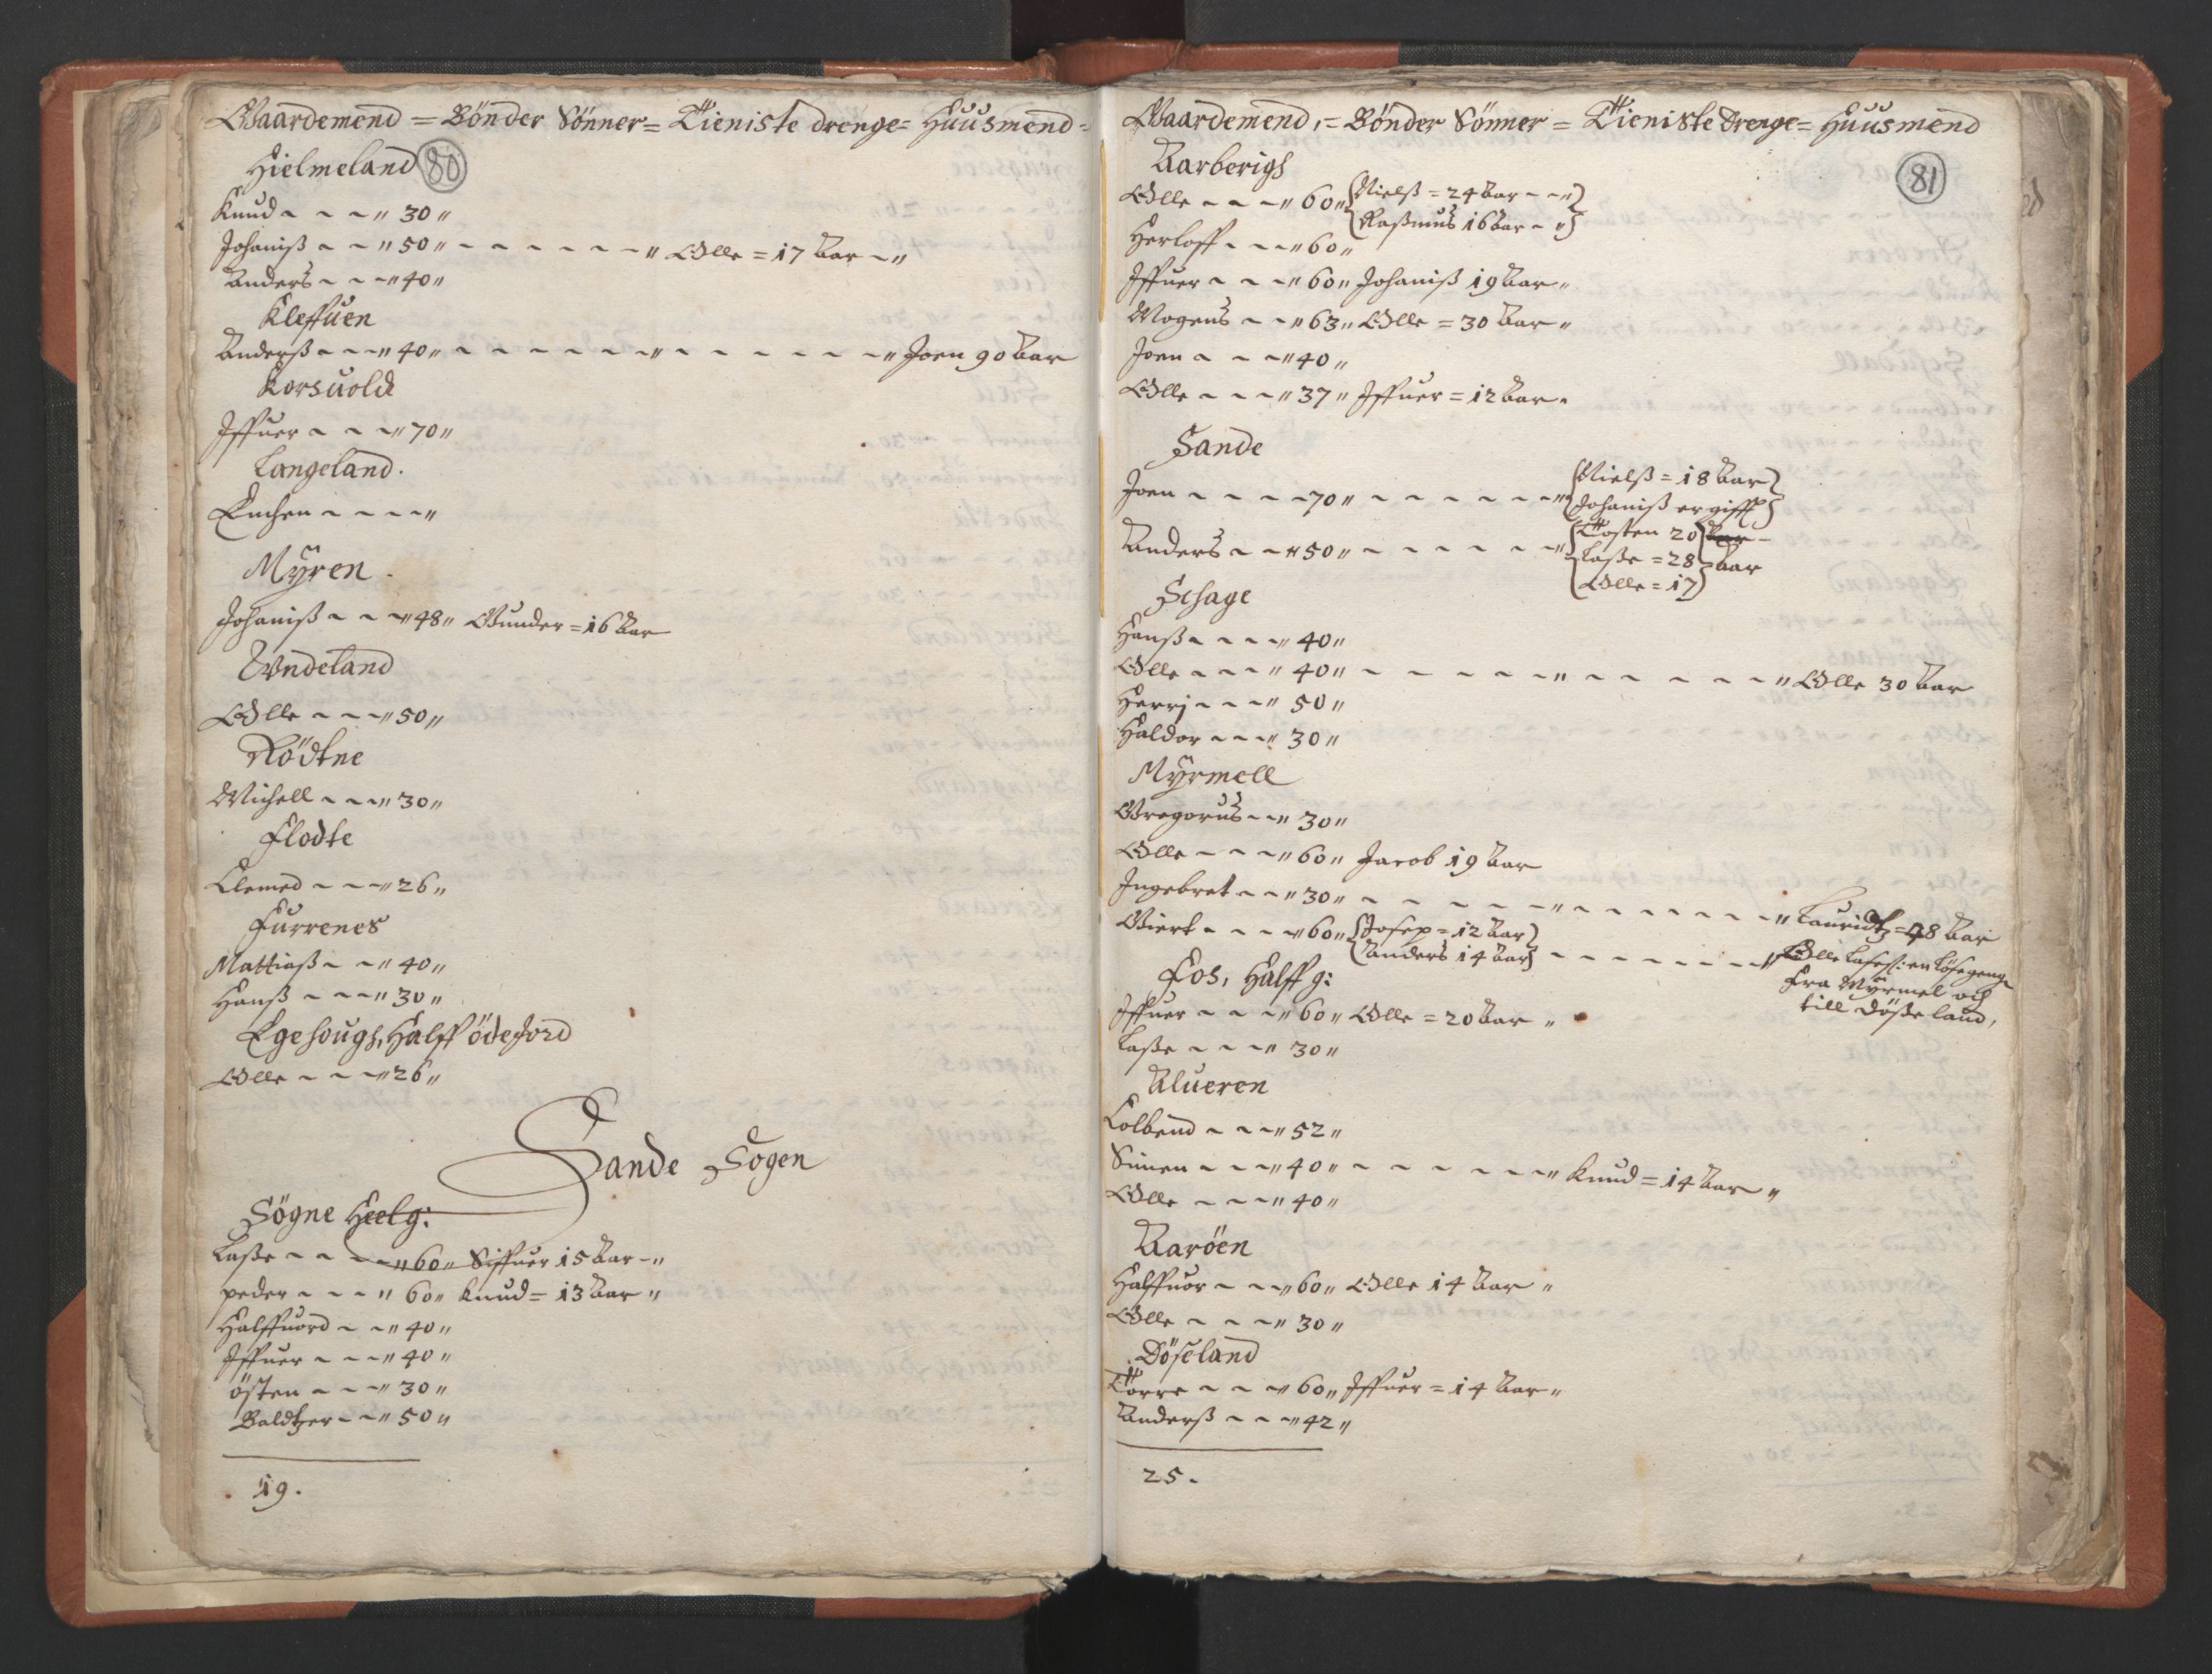 Gaardemend = Bönder Sönner = Tieniste drenge = Huusmend =
Hielmeland 80
Knud - - - " 30 "
Johaniß - - " 50 " - - - - - - " Olle = 17 Aar - "
Anders - - - " 40 "
Kleffuen
Anderß - - - " 40 " - - - - - - " - - - - - - " Joen 90 Aar
Korsuold
Iffuer - - - " 70 "
Langeland.
Enchen - - - - "
Myren
Johaniß - - - " 48 " Gunder = 16 Aar
Undeland
Olle - - - " 50 "
Rödtne
Michell - - - " 30 "
Flodte
Clemed - - - " 26 "
Furrenes
Mattiaß - - " 40 "
Hanß - - - " 30 "
Egehough, Halff ödeJord
Olle - - - " 26 "
Sande Sogen
Sögne Heelg:
Laße - - - " 60 " Siffuer 15 Aar - "
peder - - - " 60 " Knud = 13 Aar "
Halffuord - - " 40 "
Iffuer - - - " 40 "
östen - - - " 30 "
Baldtzer - - " 50 "
19.
Gaardemend, = Bönder Sönner = Tieniste Drenge = Huusmend
81
Aarberigh
Olle - - - " 60 " { Nielß = 24 Aar - - " }
{ Raßmus 16 Aar - " }
Herloff - - - " 60 "
Iffuer - - - " 60 " Johaniß 19 Aar "
Mogens - - " 63 " Olle = 30 Aar "
Joen - - - " 40 "
Olle - - - " 37 " Iffuer = 12 Aar "
Sande
Joen - - - - 70 " - - - - - - " { Nielß = 18 Aar }
{ Johaniß er gifft }
Anders - - " 50 " - - - - - - " { Tosten 20 } Aar -
{ Laße = 28 } Aar
{ Olle = 17 }
Schage
Hanß - - - - " 40 "
Olle - - - " 40 " - - - - - " - - - - - - " Olle 30 Aar
Herrj - - - " 50 "
Haldor - - - " 30 "
Myrmell
Gregorus - - " 30 "
Olle - - - " 60 " Jacob 19 Aar
Ingebret - - " 30 " - - - - - - " - - - - - - - " Lauridtz = 48 Aar
Giert - - - " 60 " { Josep = 12 Aar }
{ Anders 14 Aar } - - - - - - - " Olle Laßes: en Lößgenge
Fra Myrmel och
till Dößeland,
Fos, Halff g:
Iffuer - - - " 60 " Olle = 20 Aar "
Laße - - - " 30 "
Alueren
Colbend - - - " 52 "
Simen - - - " 40 " - - - - - - - " Knud = 14 Aar "
Olle - - - " 40 "
Aaröen
Halffuor - - " 60 " Olle 14 Aar "
Olle - - - - " 30 "
Döseland
Torre - - - " 60 " Iffuer = 14 Aar "
Anderß - - - " 42 "
25.